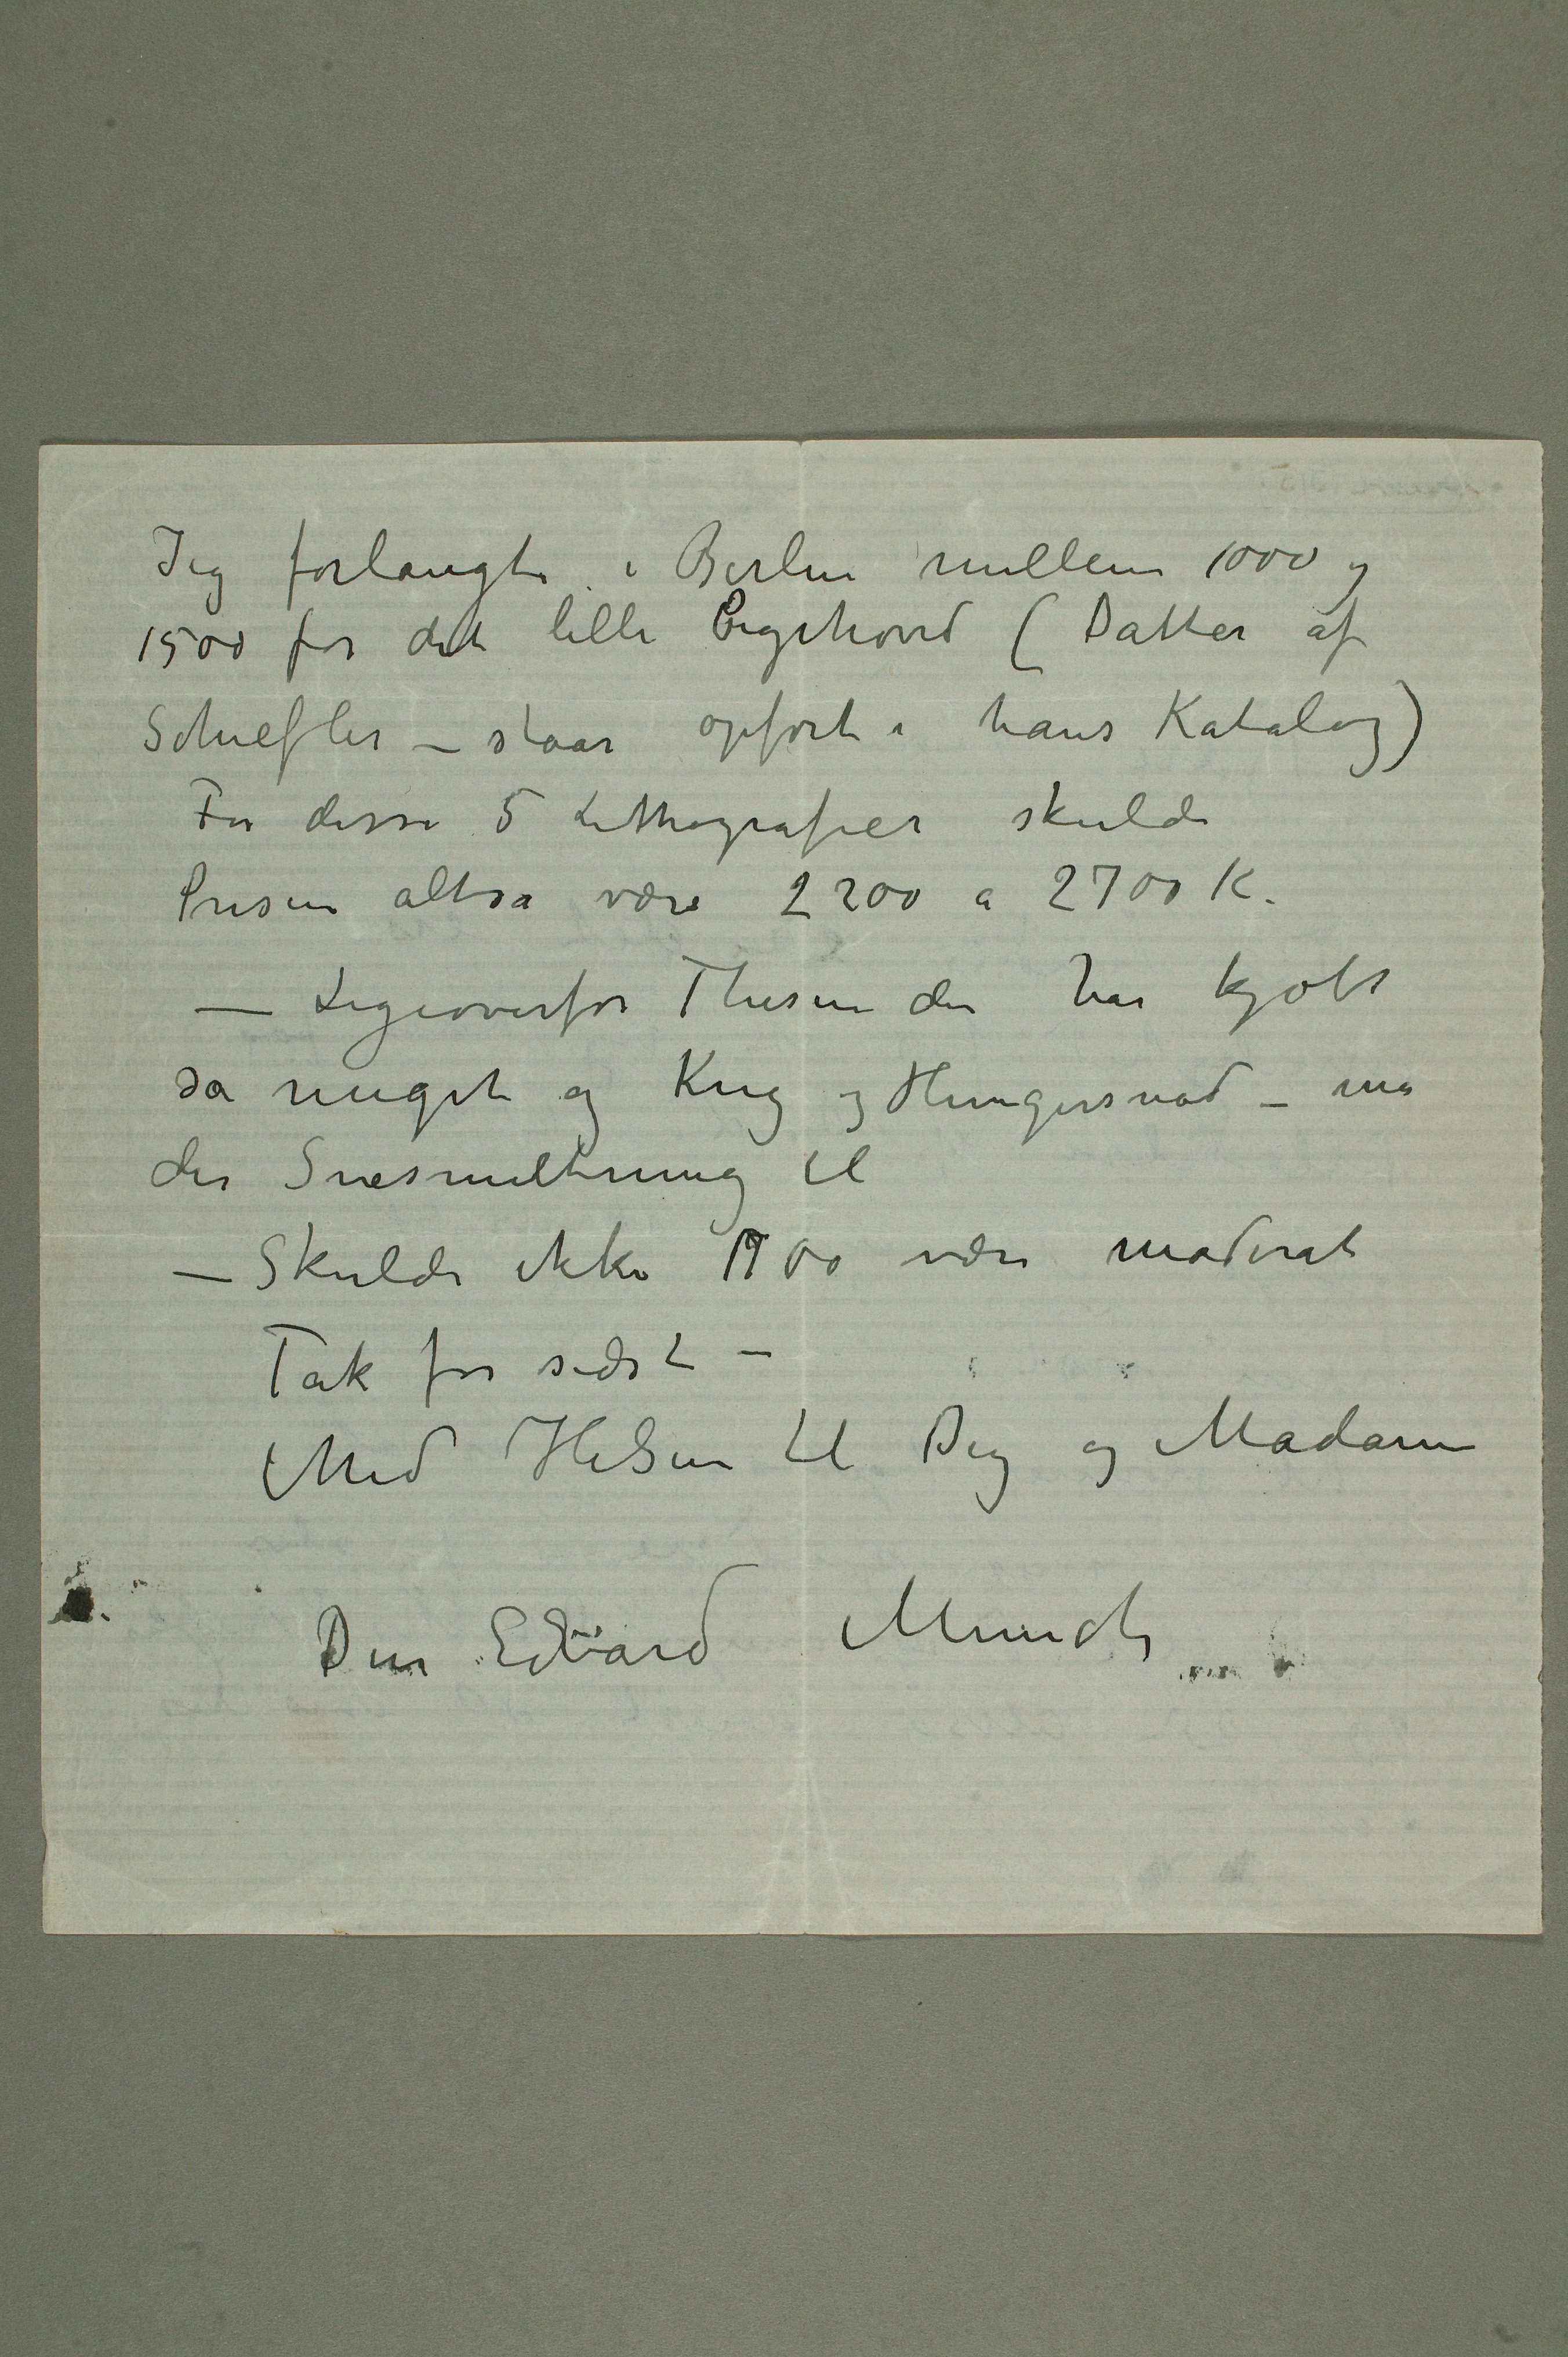 Jeg forlangte i Berlin mellem 1000 og
1500 for det lille Pigehoved (Datter af
Schiefler – staar opført i hans Katalog)
For disse 5 Lithografier skulde
Prisen altså være 2200 a 2700 K.
— Ligeoverfor Thisen der har kjøbt
så meget og Krig og Hungersnød – må
der Snesmeltning til
— Skulde ikke 1900 være moderat
Tak for sidst –
Med Hilsen til Dig og Madam
Din Edvard Munch